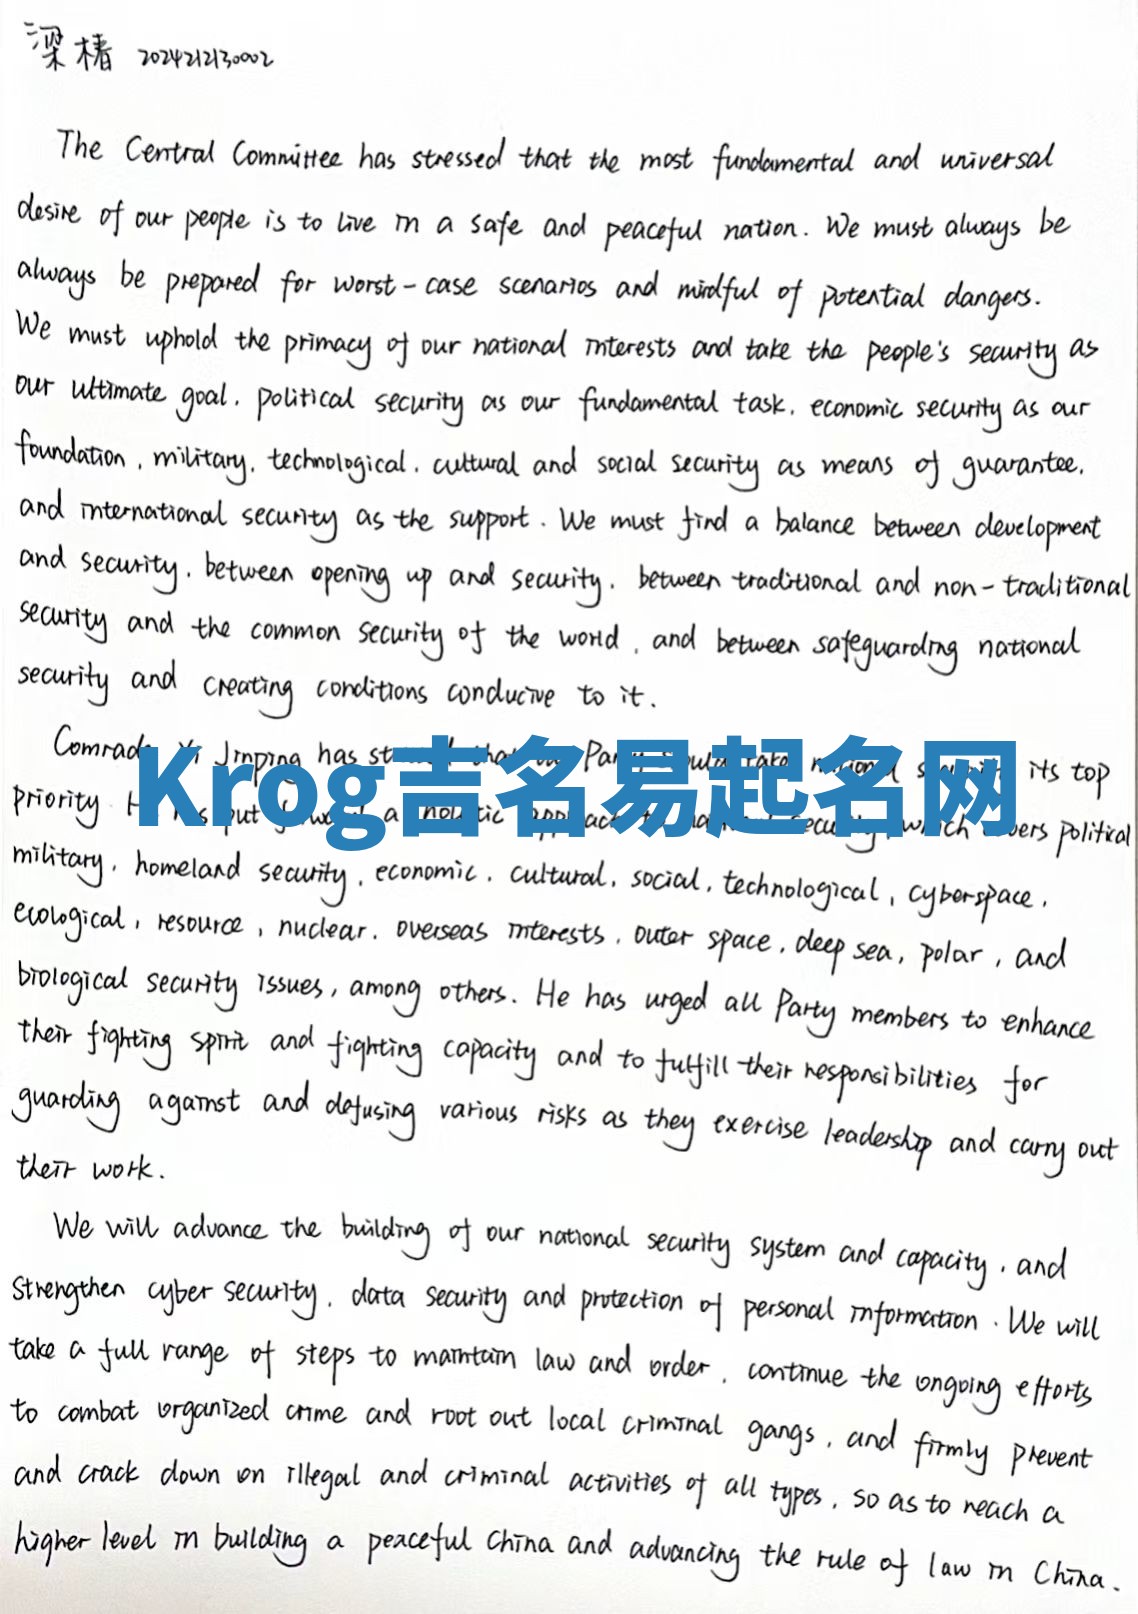 梁椿 2024212130002
The Central Committee has stressed that the most fundamental and universal
desire of our people is to live in a safe and peaceful nation. We must always be
always be prepared for worst-case scenarios and mindful of potential dangers.
We must uphold the primacy of our national interests and take the people's security as
our ultimate goal, political security as our fundamental task, economic security as our
foundation, military, technological, cultural and social security as means of guarantee,
and international security as the support. We must find a balance between development
and security, between opening up and security, between traditional and non-traditional
security and the common security of the world, and between safeguarding national
security and creating conditions conducive to it.
Comrade Xi Jinping has that Party take its top
priority. put a holistic approach security, which covers political
military, homeland security, economic, cultural, social, technological, cyberspace,
ecological, resource, nuclear, overseas interests, outer space, deep sea, polar, and
biological security issues, among others. He has urged all Party members to enhance
their fighting spirit and fighting capacity and to fulfill their responsibilities for
guarding against and defusing various risks as they exercise leadership and carry out
their work.
We will advance the building of our national security system and capacity, and
strengthen cyber security, data security and protection of personal information. We will
take a full range of steps to maintain law and order, continue the ongoing efforts
to combat organized crime and root out local criminal gangs, and firmly prevent
and crack down on illegal and criminal activities of all types, so as to reach a
higher level in building a peaceful China and advancing the rule of law in China.
Krog吉名易起名网